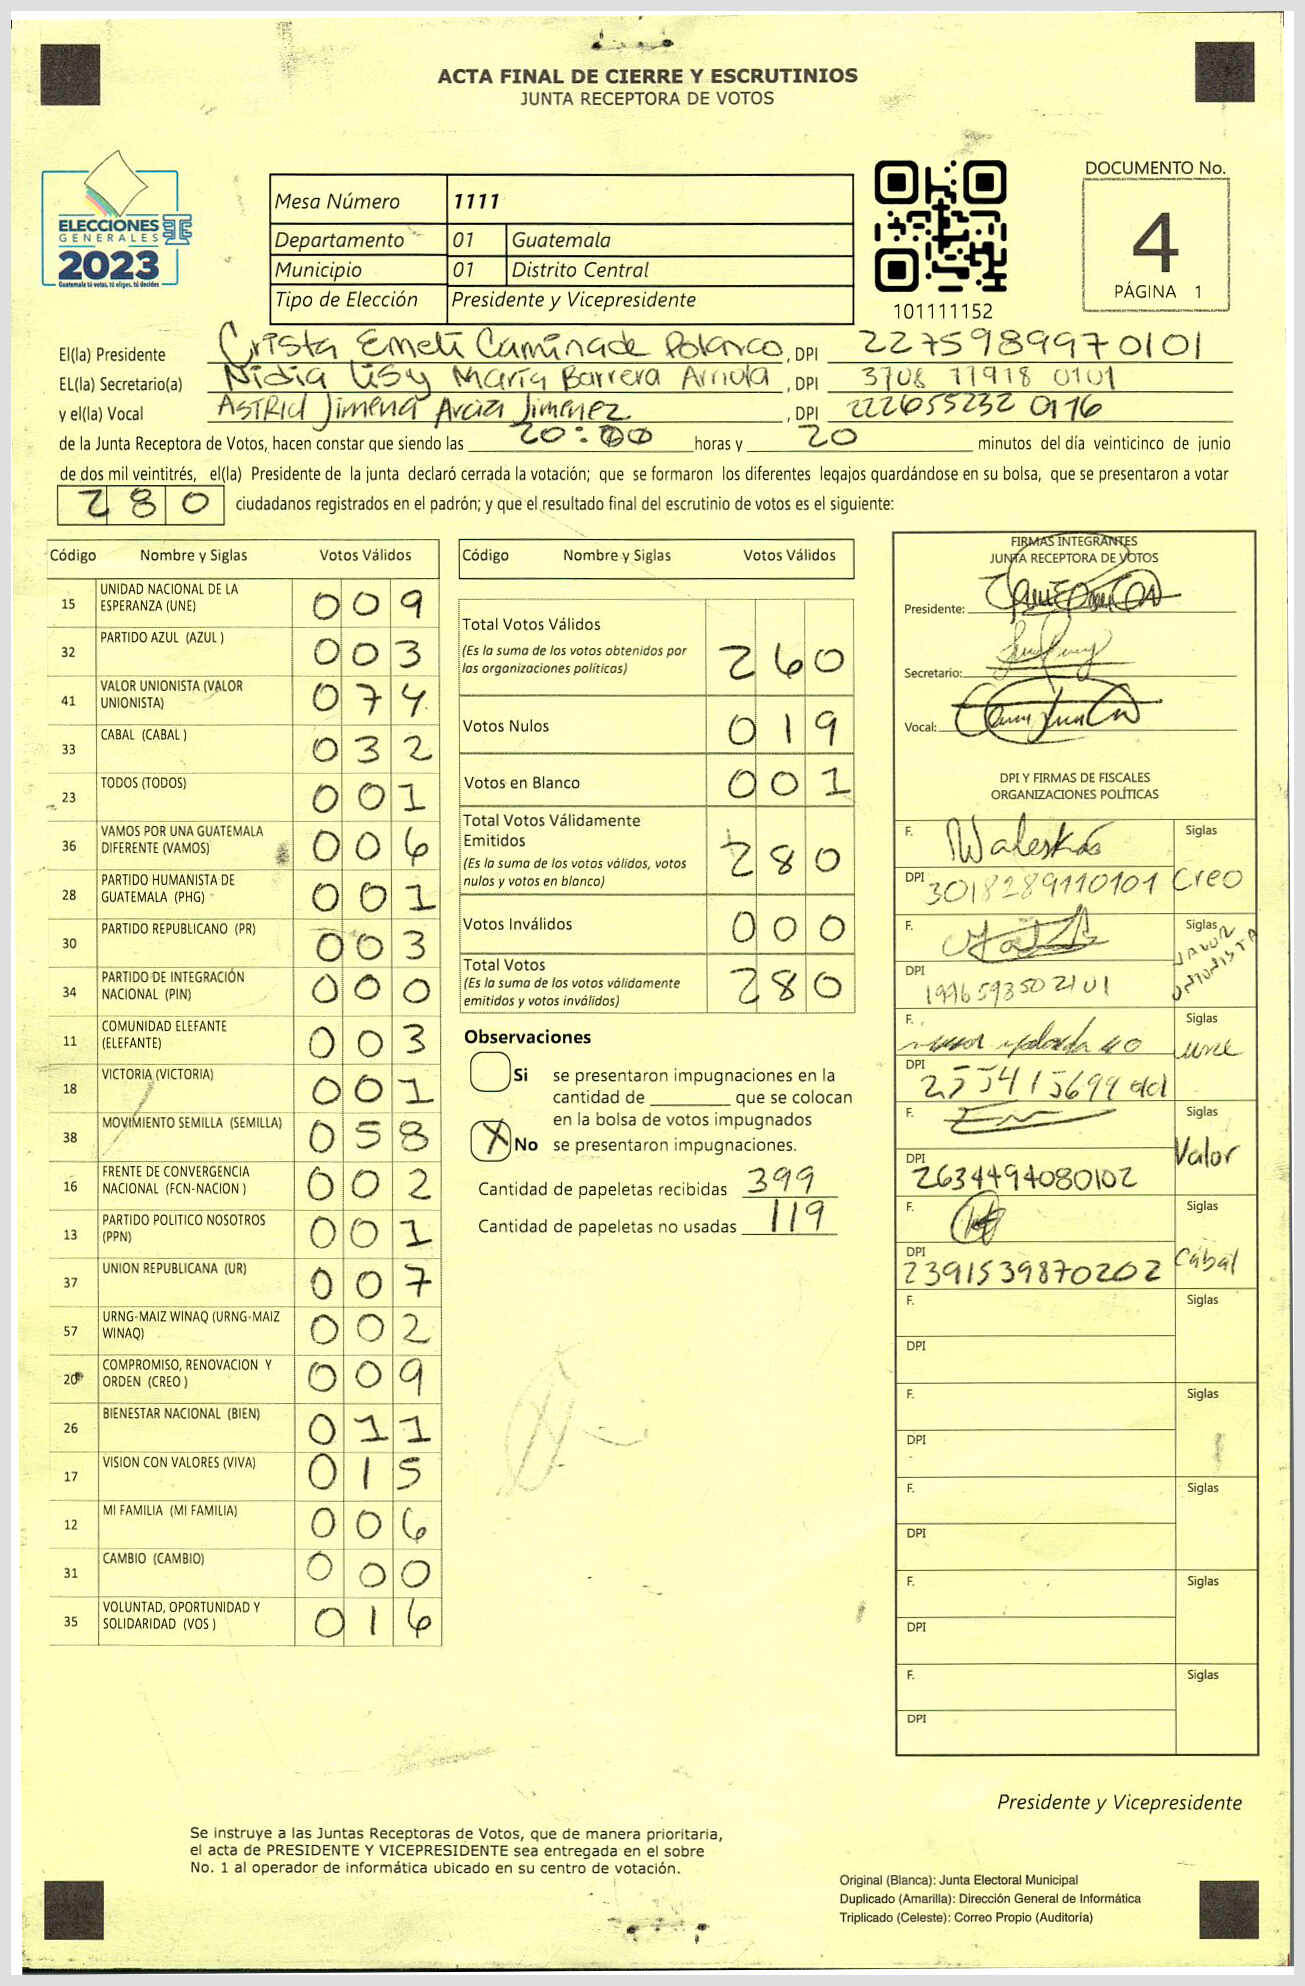 ACTA FINAL DE CIERRE Y ESCRUTINIOS
JUNTA RECEPTORA DE VOTOS
ELECCIONES
GENERALES
2023
Guatemala tú votas, tú eliges, tú decides
Mesa Número 1111
Departamento 01 Guatemala
Municipio 01 Distrito Central
Tipo de Elección Presidente y Vicepresidente
101111152
DOCUMENTO No.
4
PÁGINA 1
El(la) Presidente Crista Emeli Caminade Polanco, DPI 2275989970101
EL(la) Secretario(a) Nidia Lisy María Barrera Arriola, DPI 3708 77918 0101
y el(la) Vocal ASTRID Jimena Arciza Jimenez, DPI 222655232 0116
de la Junta Receptora de Votos, hacen constar que siendo las 20:00 horas y 20 minutos del día veinticinco de junio
de dos mil veintitrés, el(la) Presidente de la junta declaró cerrada la votación; que se formaron los diferentes legajos guardándose en su bolsa, que se presentaron a votar
280 ciudadanos registrados en el padrón; y que el resultado final del escrutinio de votos es el siguiente:
Código Nombre y Siglas Votos Válidos
15 UNIDAD NACIONAL DE LA ESPERANZA (UNE) 009
32 PARTIDO AZUL (AZUL ) 003
41 VALOR UNIONISTA (VALOR UNIONISTA) 074
33 CABAL (CABAL ) 032
23 TODOS (TODOS) 001
36 VAMOS POR UNA GUATEMALA DIFERENTE (VAMOS) 006
28 PARTIDO HUMANISTA DE GUATEMALA (PHG) 001
30 PARTIDO REPUBLICANO (PR) 003
34 PARTIDO DE INTEGRACIÓN NACIONAL (PIN) 000
11 COMUNIDAD ELEFANTE (ELEFANTE) 003
18 VICTORIA (VICTORIA) 001
38 MOVIMIENTO SEMILLA (SEMILLA) 058
16 FRENTE DE CONVERGENCIA NACIONAL (FCN-NACION ) 002
13 PARTIDO POLITICO NOSOTROS (PPN) 001
37 UNION REPUBLICANA (UR) 007
57 URNG-MAIZ WINAQ (URNG-MAIZ WINAQ) 002
20 COMPROMISO, RENOVACION Y ORDEN (CREO ) 009
26 BIENESTAR NACIONAL (BIEN) 011
17 VISION CON VALORES (VIVA) 015
12 MI FAMILIA (MI FAMILIA) 006
31 CAMBIO (CAMBIO) 000
35 VOLUNTAD, OPORTUNIDAD Y SOLIDARIDAD (VOS ) 016
Código Nombre y Siglas Votos Válidos
Total Votos Válidos 260
(Es la suma de los votos obtenidos por
las organizaciones políticas)
Votos Nulos 019
Votos en Blanco 001
Total Votos Válidamente
Emitidos 280
(Es la suma de los votos válidos, votos
nulos y votos en blanco)
Votos Inválidos 000
Total Votos 280
(Es la suma de los votos válidamente
emitidos y votos inválidos)
Observaciones
Si se presentaron impugnaciones en la
cantidad de ________ que se colocan
en la bolsa de votos impugnados
X No se presentaron impugnaciones.
Cantidad de papeletas recibidas 399
Cantidad de papeletas no usadas 119
FIRMAS INTEGRANTES
JUNTA RECEPTORA DE VOTOS
Presidente:
Secretario:
Vocal:
DPI Y FIRMAS DE FISCALES
ORGANIZACIONES POLÍTICAS
F. Waleska Siglas
DPI 3018289110101 Creo
F. Siglas VALOR UNIONISTA
DPI 1996593502101
F. Siglas une
DPI 255415699
F. Siglas
DPI 2634494080102 Valor
F. Siglas
DPI 2391539870202 Cabal
F. Siglas
DPI
F. Siglas
DPI
F. Siglas
DPI
F. Siglas
DPI
F. Siglas
DPI
Presidente y Vicepresidente
Se instruye a las Juntas Receptoras de Votos, que de manera prioritaria,
el acta de PRESIDENTE Y VICEPRESIDENTE sea entregada en el sobre
No. 1 al operador de informática ubicado en su centro de votación.
Original (Blanca): Junta Electoral Municipal
Duplicado (Amarilla): Dirección General de Informática
Triplicado (Celeste): Correo Propio (Auditoría)